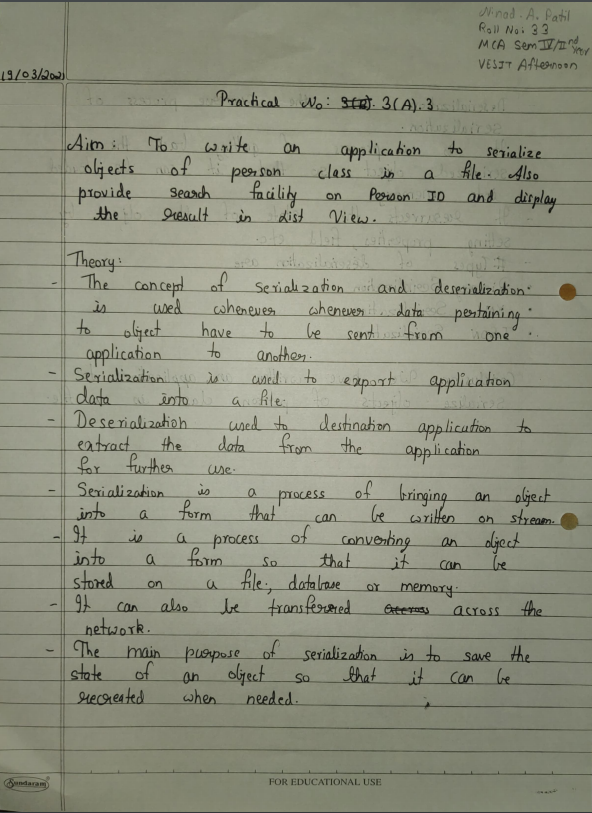 Ninad. A. Patil
Roll No: 33
MCA Sem IV/IInd Year
VESIT Afternoon
19/03/202
Practical No: 3(A).3
Aim: To write an application to serialize
objects of person class in a file. Also
provide search facility on Person ID and display
the result in List View.
Theory:
- The concept of serialization and deserialization
is used whenever whenever data pertaining
to object have to be sent from one
application to another.
- Serialization is used to export application
data into a file.
- Deserialization used to destination application to
extract the data from the application
for further use.
- Serialization is a process of bringing an object
into a form that can be written on stream.
- It is a process of converting an object
into a form so that it can be
stored on a file, database or memory.
- It can also be transferred across the
network.
- The main purpose of serialization is to save the
state of an object so that it can be
recreated when needed.
Sundaram
FOR EDUCATIONAL USE